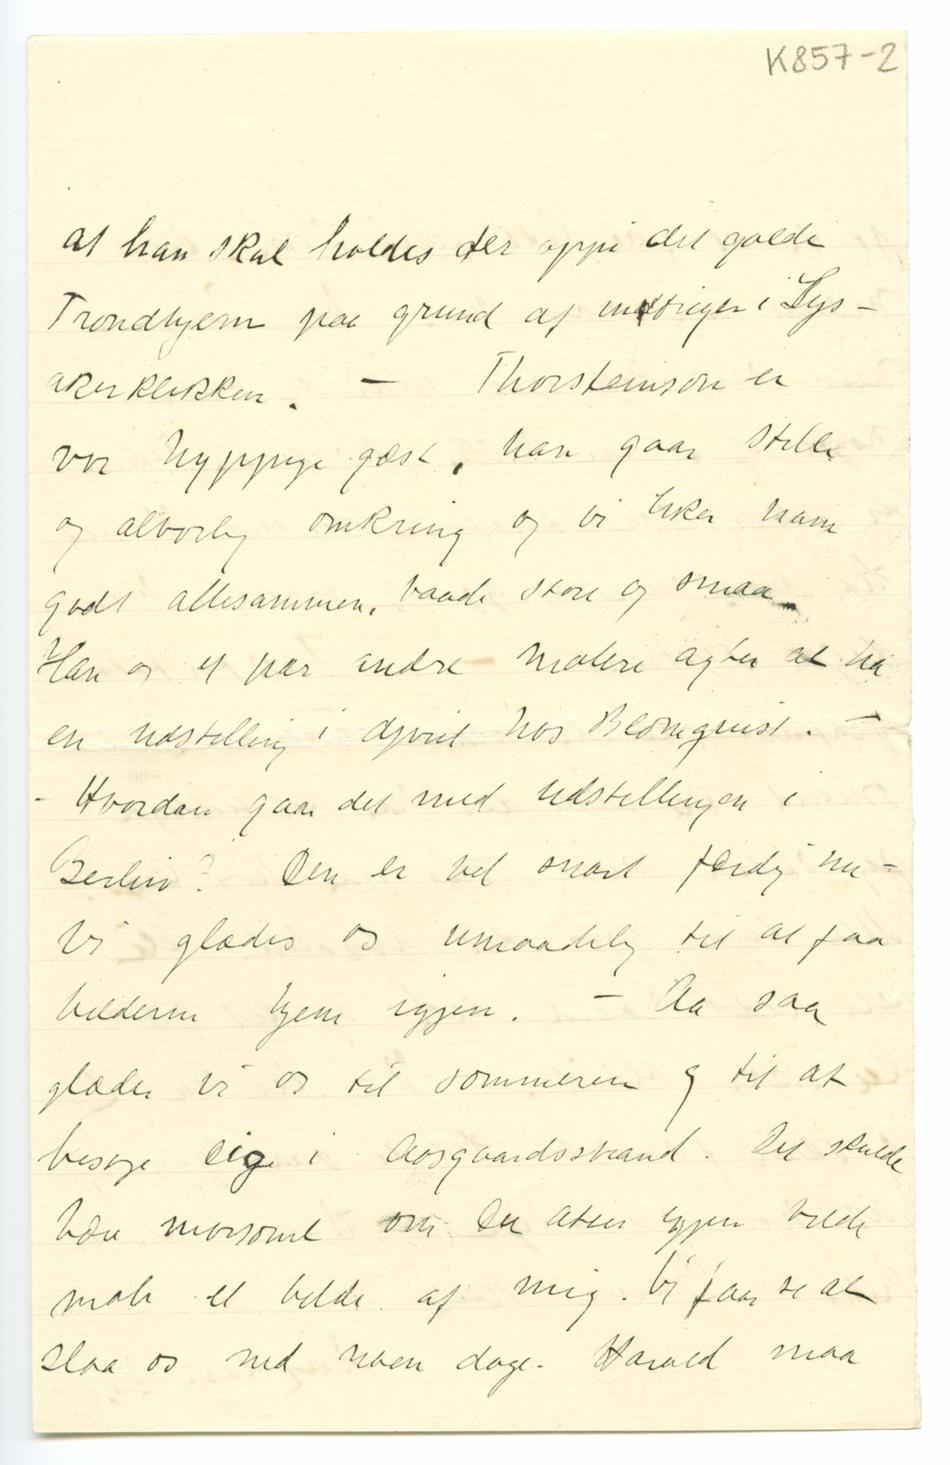 K857-2
at han skal holdes der oppe i det golde
Trondhjem paa grund af intriger i Lys-
akerklikken. – Thorsteinson er
vor hyppige gæst, han gaar stille
og alvorlig omkring og vi liker ham
godt allesammen, baade store og smaa.
Han og et par andre malere agter at ha
en udstilling i april hos Blomqvist. –
- Hvordan gaar det med udstillingen i
Berlin? Den er vel snart færdig nu –
Vi glæder os umaadelig til at faa
billederne hjem igjen. – Aa saa
glæder vi os til sommeren og til at
besøge Dig i Aasgaardsstrand. Det skulde
være morsomt om Du atter igjen vilde
male et billede af mig. Vi faar se at
slaa os ned noen dage. Harald maa